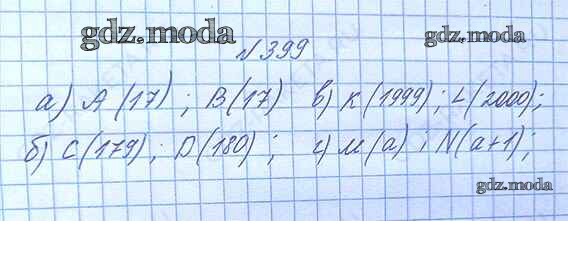 gdz.moda
gdz.moda
№ 399
а) A (17) ; B(17) в) K(1999) ; L(2000);
б) C(179) ; D(180) ; г) M(a) ; N(a+1);
gdz.moda